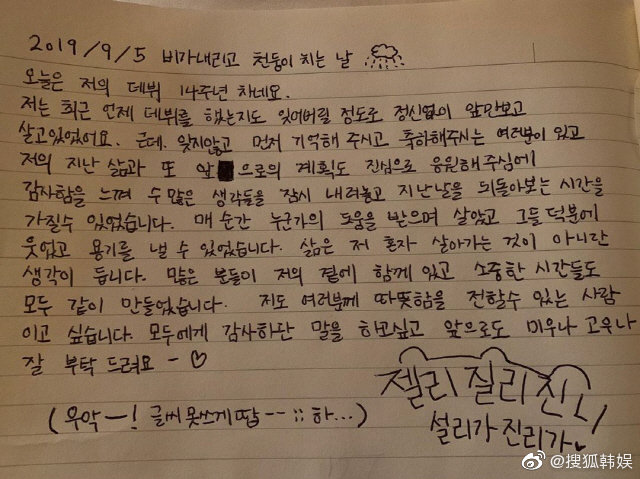 2019/9/5 비가내리고 천둥이 치는 날
오늘은 저의 데뷔 14주년 차네요.
저는 최근 언제 데뷔를 했는지도 잊어버릴 정도로 정신없이 앞만보고
살고있었어요. 근데. 잊지않고 먼저 기억해 주시고 축하해주시는 여러분이 있고
저의 지난 삶과 또 앞 으로의 계획도 진심으로 응원해주심에
감사함을 느껴 수많은 생각들을 잠시 내려놓고 지난날을 뒤돌아보는 시간을
가질수 있었습니다. 매 순간 누군가의 도움을 받으며 살았고 그들 덕분에
웃었고 용기를 낼 수 있었습니다. 삶은 저 혼자 살아가는 것이 아니란
생각이 듭니다. 많은 분들이 저의 곁에 함께 있고 소중한 시간들도
모두 같이 만들었습니다. 저도 여러분께 따뜻함을 전할수 있는 사람
이고 싶습니다. 모두에게 감사하단 말을 하고싶고 앞으로도 미우나 고우나
잘 부탁 드려요 - ♡
(우악ㅡ! 글씨 못쓰게땁-- ;; 하...)
젤리 질리 진니
설리가 진리가♥
@搜狐韩娱